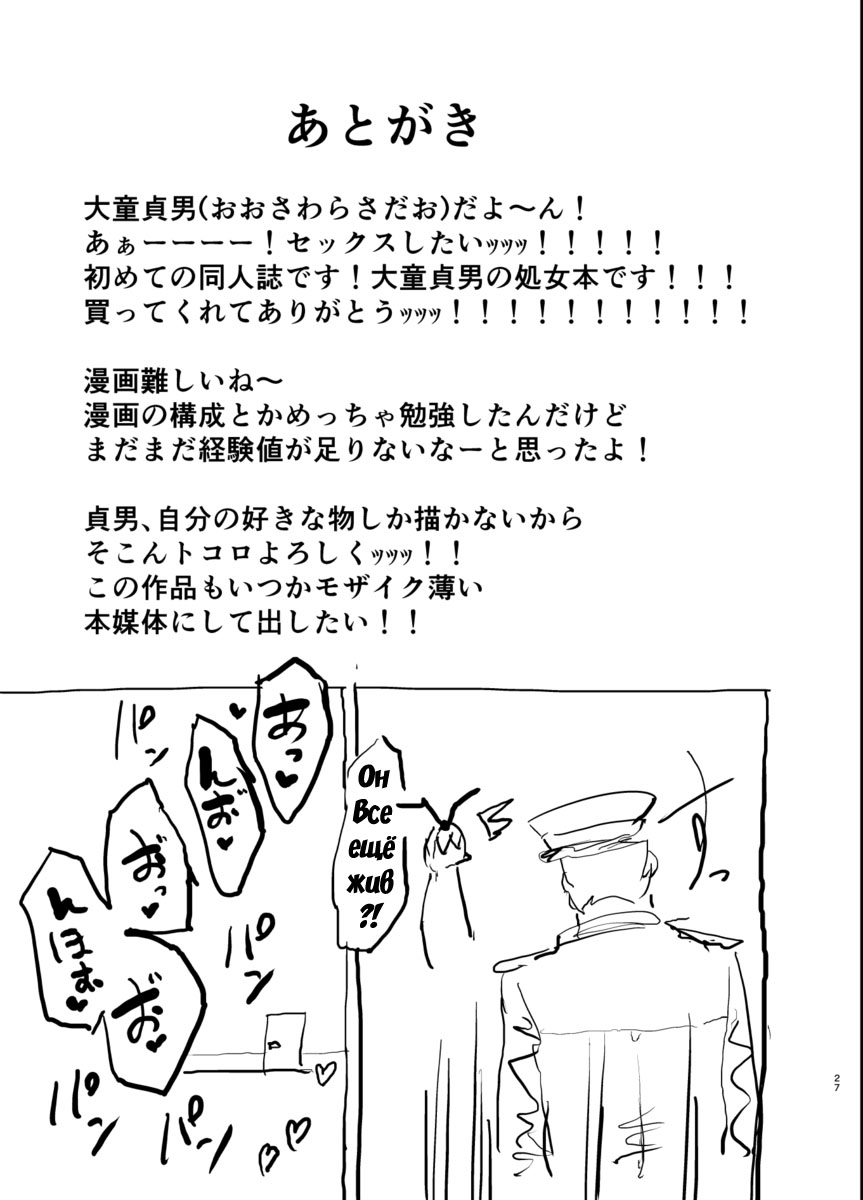 あとがき
大童貞男(おおさわらさだお)だよ～ん！
あぁーーーー！セックスしたいｯｯｯ！！！！！
初めての同人誌です！大童貞男の処女本です！！！
買ってくれてありがとうｯｯｯ！！！！！！！！！！！
漫画難しいね～
漫画の構成とかめっちゃ勉強したんだけど
まだまだ経験値が足りないなーと思ったよ！
貞男、自分の好きな物しか描かないから
そこんトコロよろしくｯｯｯ！！
この作品もいつかモザイク薄い
本媒体にして出したい！！
あっ♥
んお゛♥
お゛っ♥
んほお♥
お゛♥
パン
パン
パン
パン
Он
Все
ещё
жив
?!
27